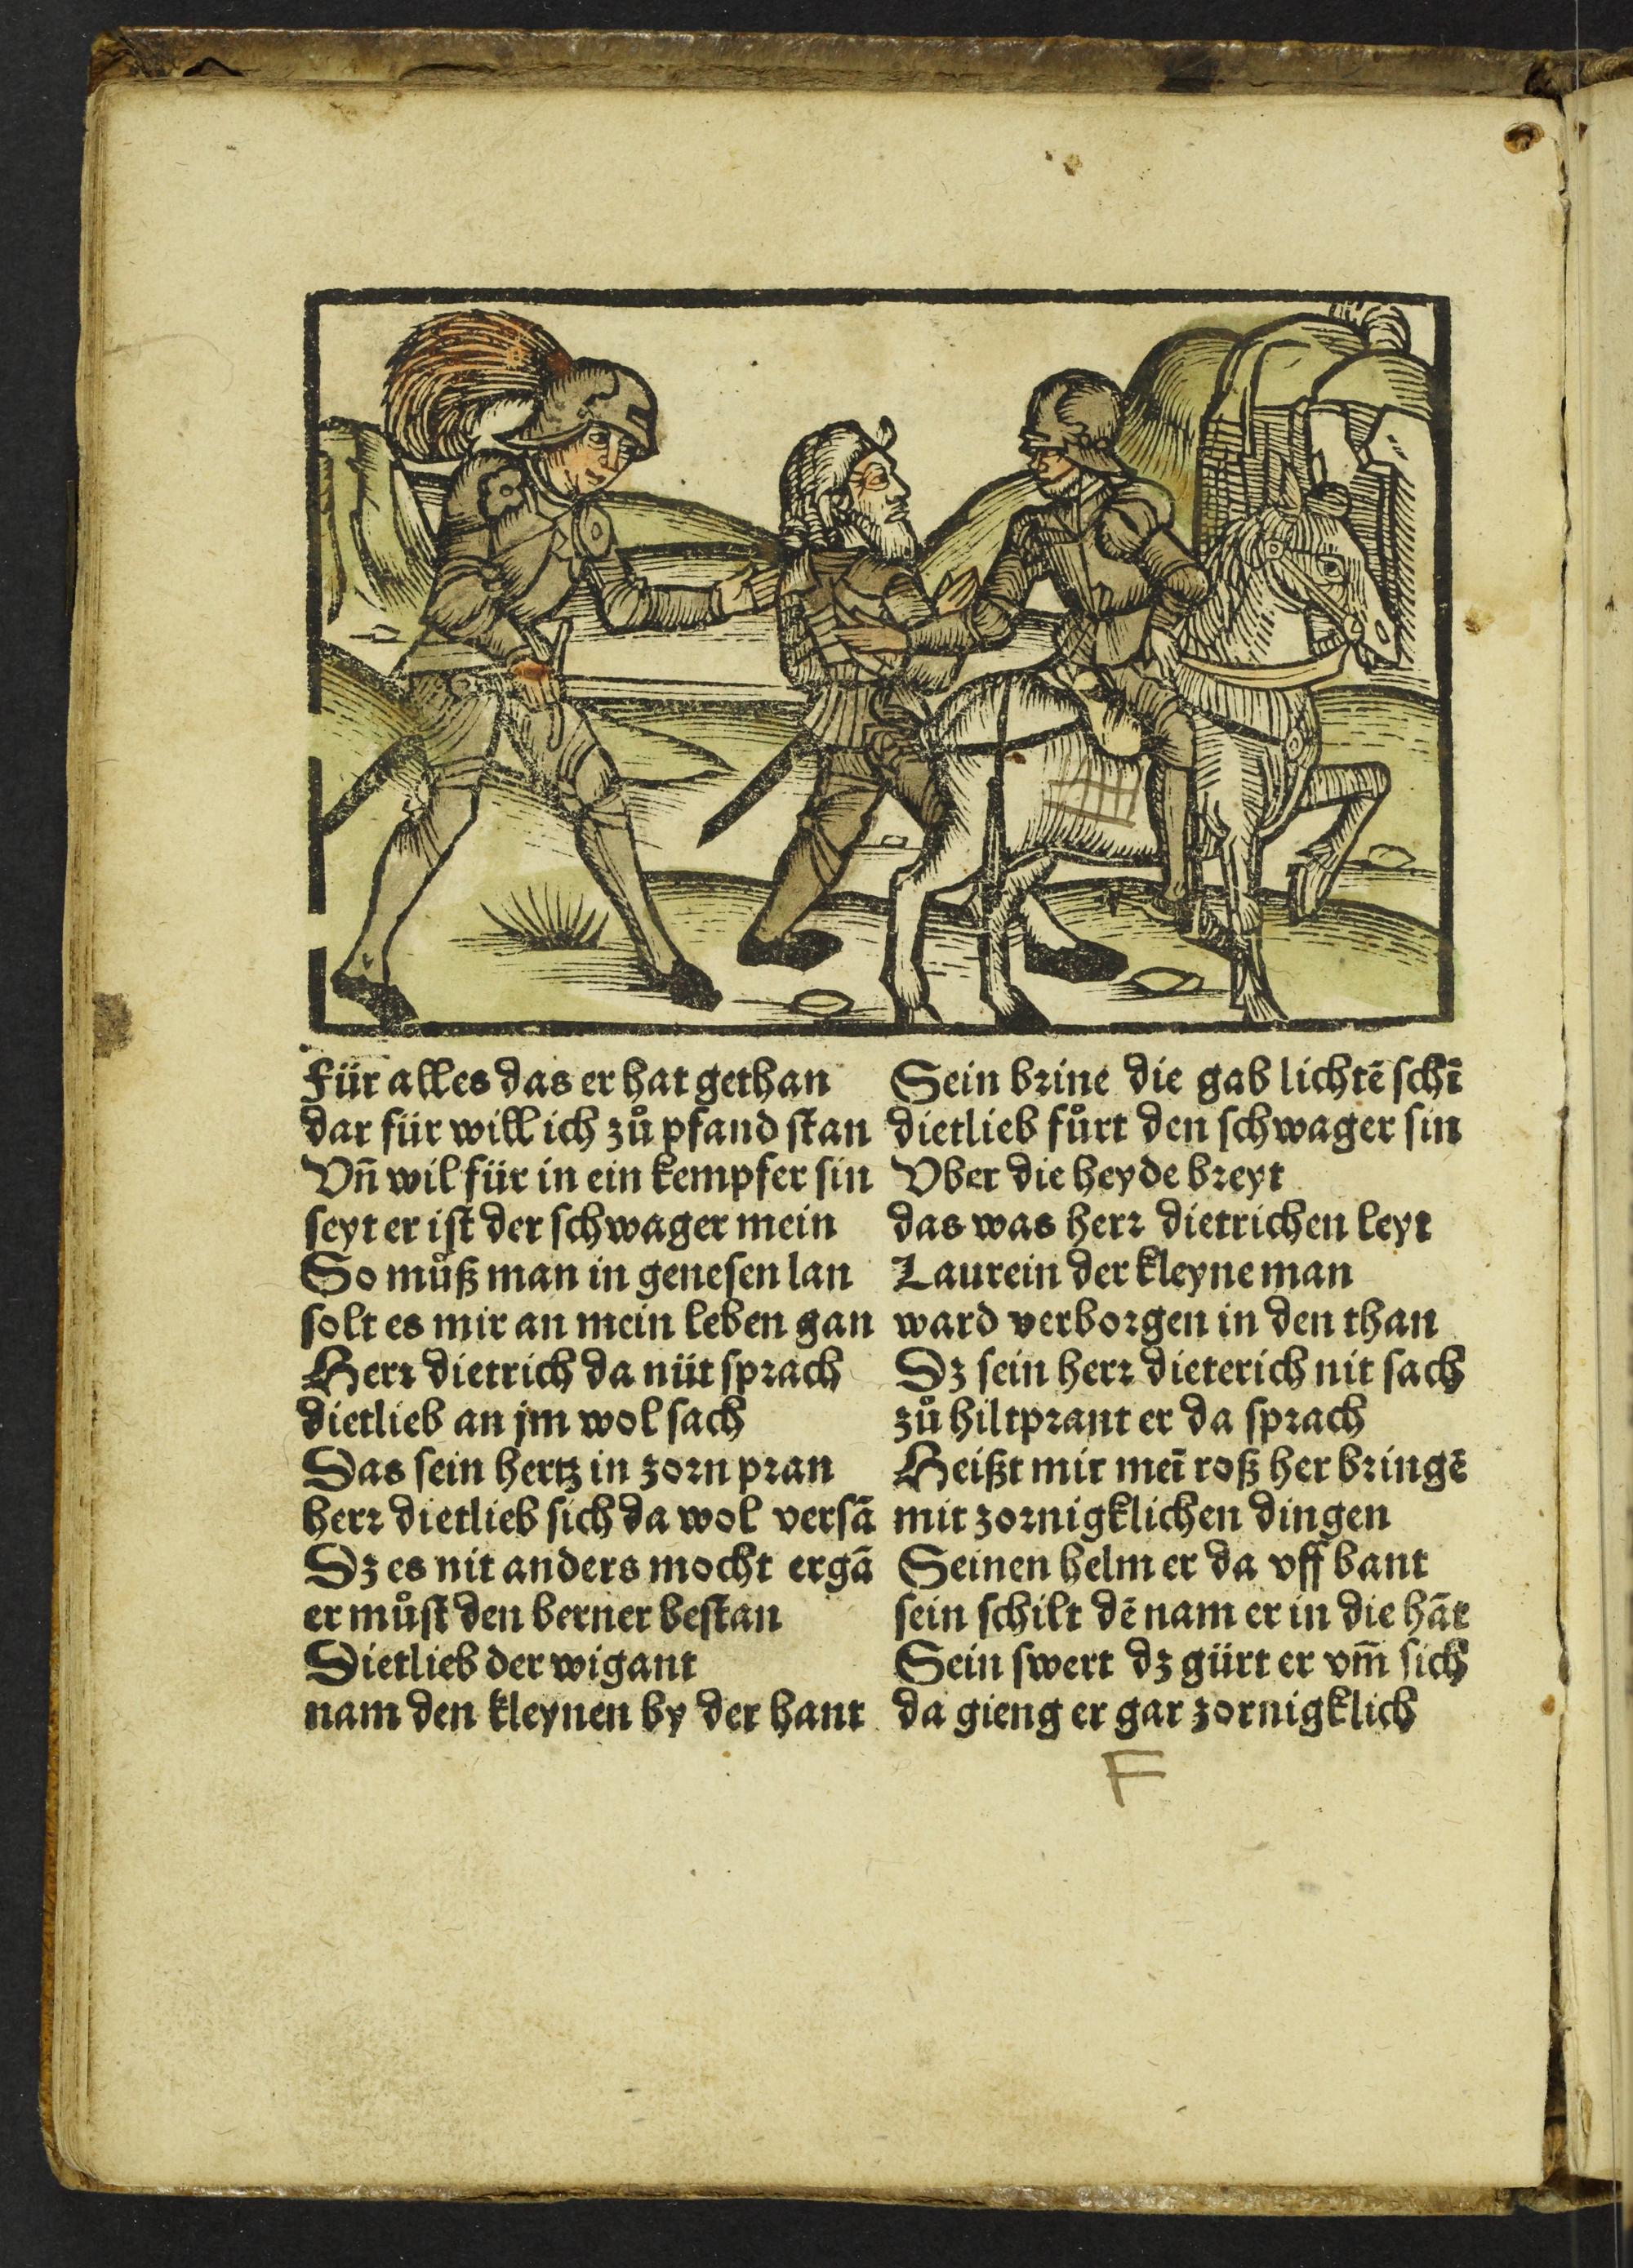 Für alles das er hat gethan
dar für will ich zuͦ pfand stan
Vn̄ wil für in ein kempfer sin
seyt er ist der schwager mein
So muͦß man in genesen lan
solt es mir an mein leben gan
Herr dietrich da nüt sprach
dietlieb an jm wol sach
Das sein hertz in zorn pran
herr dietlieb sich da wol versā
Dz es nit anders mocht ergā
er muͦst den berner bestan
Dietlieb der wigant
nam den kleynen by der hant
Sein brine die gab lichtē schī
dietlieb fuͦrt den schwager sin
Vber die heyde breyt
das was herr dietrichen leyt
Laurein der kleyne man
ward verborgen in den than
Dz sein herr dieterich nit sach
zuͦ hiltprant er da sprach
Heißt mir meī roß her bringē
mit zornigklichen dingen
Seinen helm er da vff bant
sein schilt dē nam er in die hāt
Sein swert dz gürt er vm̄ sich
da gieng er gar zornigklich
F